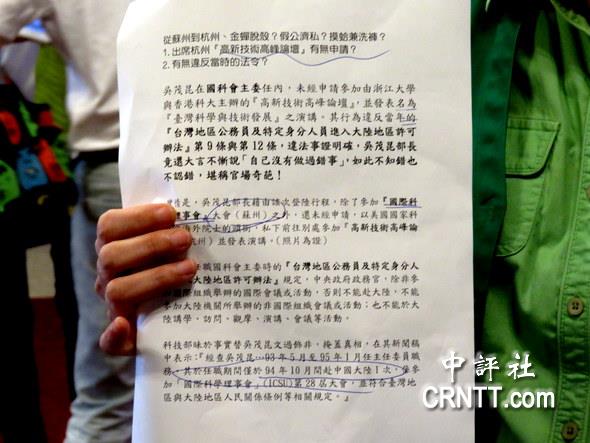 從蘇州到杭州、金蟬脫殼？假公濟私？摸蛤兼洗褲？
1.出席杭州『高新技術高峰論壇』有無申請？
2.有無違反當時的法令？
吳茂昆在國科會主委任內，未經申請參加由浙江大學
與香港科大主辦的『高新技術高峰論壇』，並發表名為
『臺灣科學與技術發展』之演講。其行為違反當年的
『台灣地區公務員及特定身分人員進入大陸地區許可
辦法』第9條與第12條，違法事證明確，吳茂昆部長
竟還大言不慚說「自己沒有做過錯事」，如此不知錯也
不認錯，堪稱官場奇葩！
是，吳茂昆部長藉由該次登陸行程，除了參加『國際科
理事會』大會（蘇州）之外，還未經申請，以美國國家科
外院士的頭銜，私下前往別處參加『高新技術高峰論
州）並發表演講。（照片為證）
任職國科會主委時的『台灣地區公務員及特定身分人
大陸地區許可辦法』規定，中央政府政務官，除非參
國際組織舉辦的國際會議或活動，否則不能赴大陸，不能
參加大陸機關所舉辦的非國際組織會議或活動；也不能於大
陸講學、訪問、觀摩、演講、會議等活動。
科技部昧於事實替吳茂昆文過飾非，掩蓋真相，在其新聞稿
中表示：『經查吳茂昆 93年5月至95年1月任主任委員職
務，其於任職期間僅於94年10月間赴中國大陸1次，係參
加「國際科學理事會」(ICSU)第28屆大會，並符合臺灣地
區與大陸地區人民關係條例等相關規定。』
中評社
CRNTT.com